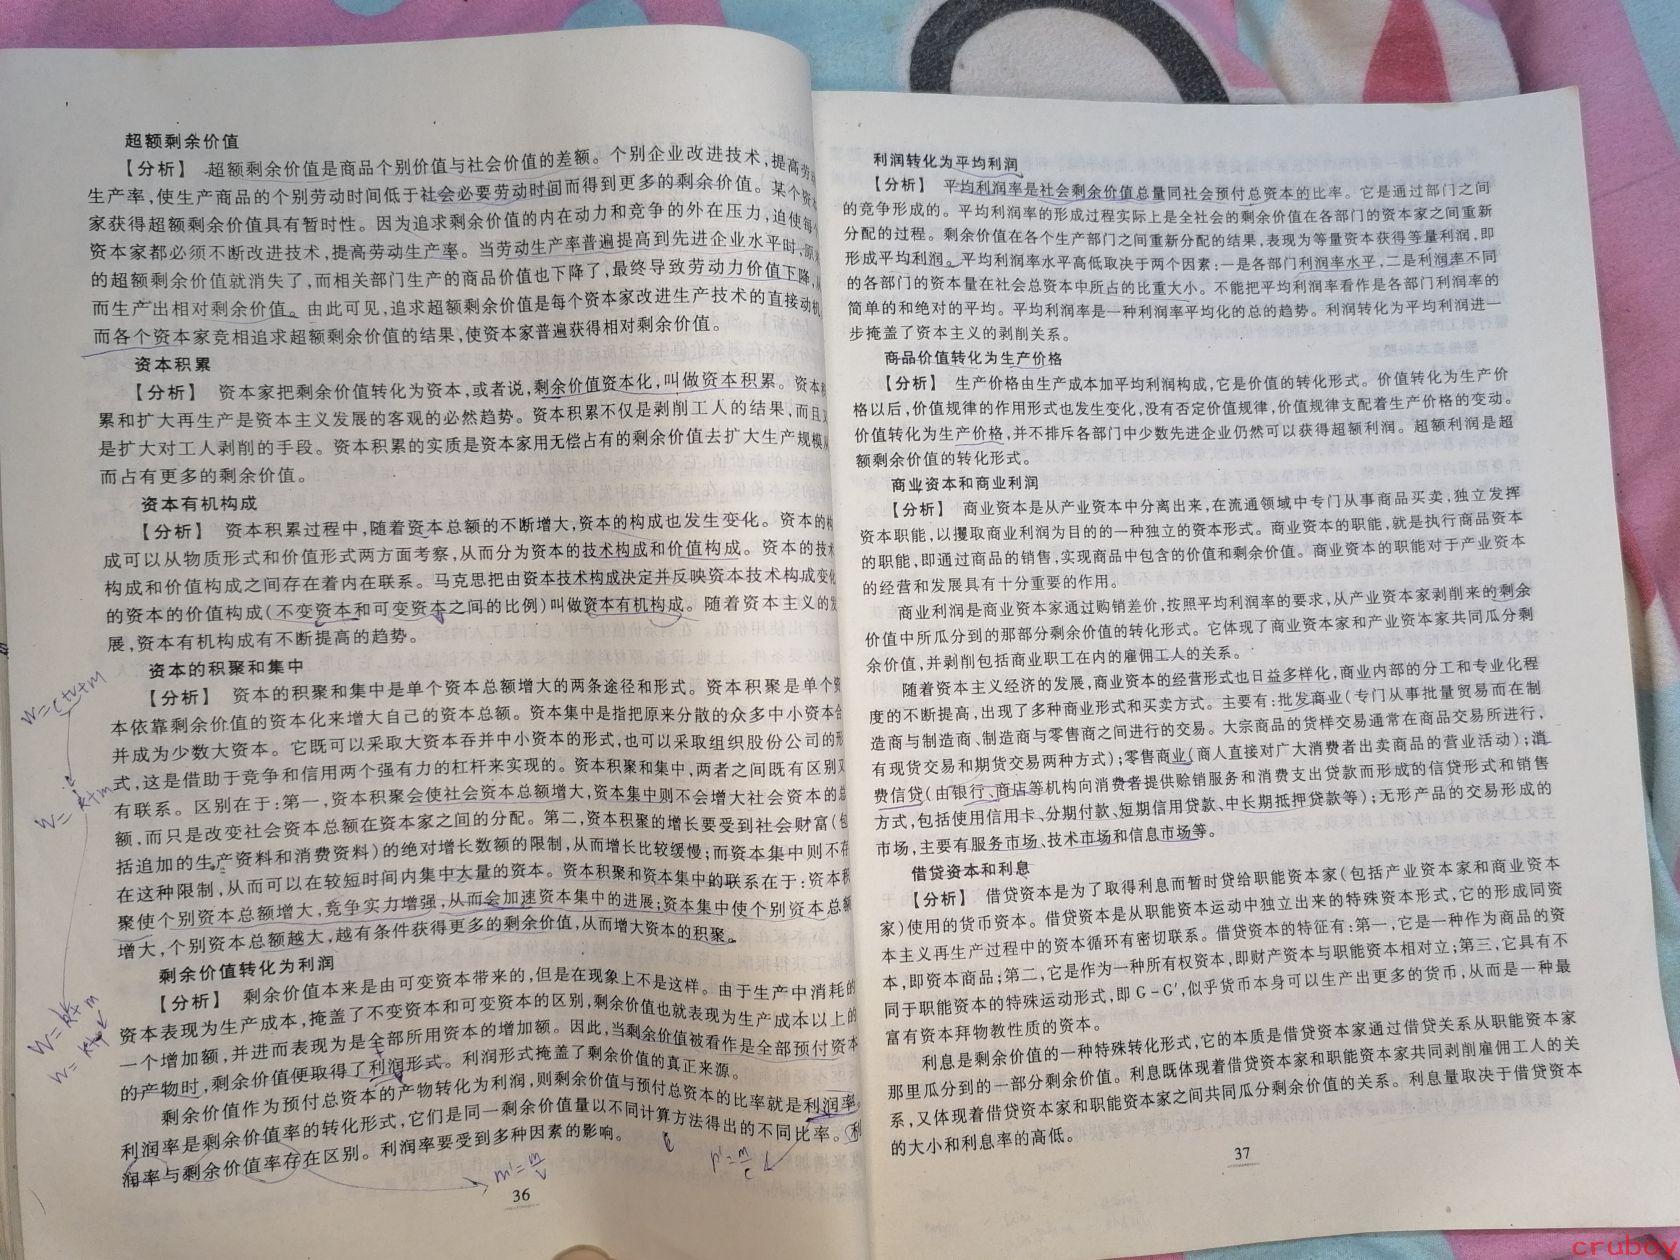 超额剩余价值
【分析】 超额剩余价值是商品个别价值与社会价值的差额。个别企业改进技术,提高劳动
生产率,使生产商品的个别劳动时间低于社会必要劳动时间而得到更多的剩余价值。某个资
家获得超额剩余价值具有暂时性。因为追求剩余价值的内在动力和竞争的外在压力,迫使每
资本家都必须不断改进技术,提高劳动生产率。当劳动生产率普遍提高到先进企业水平时,原
的超额剩余价值就消失了,而相关部门生产的商品价值也下降了,最终导致劳动力价值下降,
而生产出相对剩余价值。由此可见,追求超额剩余价值是每个资本家改进生产技术的直接动机,
而各个资本家竞相追求超额剩余价值的结果,使资本家普遍获得相对剩余价值。
资本积累
【分析】 资本家把剩余价值转化为资本,或者说,剩余价值资本化,叫做资本积累。资本
累和扩大再生产是资本主义发展的客观的必然趋势。资本积累不仅是剥削工人的结果,而且
是扩大对工人剥削的手段。资本积累的实质是资本家用无偿占有的剩余价值去扩大生产规模
而占有更多的剩余价值。
资本有机构成
【分析】 资本积累过程中,随着资本总额的不断增大,资本的构成也发生变化。资本的构
成可以从物质形式和价值形式两方面考察,从而分为资本的技术构成和价值构成。资本的技术
构成和价值构成之间存在着内在联系。马克思把由资本技术构成决定并反映资本技术构成变化
的资本的价值构成(不变资本和可变资本之间的比例)叫做资本有机构成。随着资本主义的发
展,资本有机构成有不断提高的趋势。
资本的积聚和集中
【分析】 资本的积聚和集中是单个资本总额增大的两条途径和形式。资本积聚是单个资
本依靠剩余价值的资本化来增大自己的资本总额。资本集中是指把原来分散的众多中小资本合
并成为少数大资本。它既可以采取大资本吞并中小资本的形式,也可以采取组织股份公司的形
式,这是借助于竞争和信用两个强有力的杠杆来实现的。资本积聚和集中,两者之间既有区别又
有联系。区别在于:第一,资本积聚会使社会资本总额增大,资本集中则不会增大社会资本的总
额,而只是改变社会资本总额在资本家之间的分配。第二,资本积聚的增长要受到社会财富(包
括追加的生产资料和消费资料)的绝对增长数额的限制,从而增长比较缓慢;而资本集中则不存
在这种限制,从而可以在较短时间内集中大量的资本。资本积聚和资本集中的联系在于:资本积
聚使个别资本总额增大,竞争实力增强,从而会加速资本集中的进展;资本集中使个别资本总额
增大,个别资本总额越大,越有条件获得更多的剩余价值,从而增大资本的积聚。
剩余价值转化为利润
【分析】 剩余价值本来是由可变资本带来的,但是在现象上不是这样。由于生产中消耗的
资本表现为生产成本,掩盖了不变资本和可变资本的区别,剩余价值也就表现为生产成本以上的
一个增加额,并进而表现为是全部所用资本的增加额。因此,当剩余价值被看作是全部预付资本
的产物时,剩余价值便取得了利润形式。利润形式掩盖了剩余价值的真正来源。
剩余价值作为预付总资本的产物转化为利润,则剩余价值与预付总资本的比率就是利润率。
利润率是剩余价值率的转化形式,它们是同一剩余价值量以不同计算方法得出的不同比率。利
润率与剩余价值率存在区别。利润率要受到多种因素的影响。
W=c+v+m
m'=m/v
p'=m/c
36
利润转化为平均利润
【分析】 平均利润率是社会剩余价值总量同社会预付总资本的比率。它是通过部门之间
的竞争形成的。平均利润率的形成过程实际上是全社会的剩余价值在各部门的资本家之间重新
分配的过程。剩余价值在各个生产部门之间重新分配的结果,表现为等量资本获得等量利润,即
形成平均利润。平均利润率水平高低取决于两个因素:一是各部门利润率水平,二是利润率不同
的各部门的资本量在社会总资本中所占的比重大小。不能把平均利润率看作是各部门利润率的
简单的和绝对的平均。平均利润率是一种利润率平均化的总的趋势。利润转化为平均利润进一
步掩盖了资本主义的剥削关系。
商品价值转化为生产价格
【分析】 生产价格由生产成本加平均利润构成,它是价值的转化形式。价值转化为生产价
格以后,价值规律的作用形式也发生变化,没有否定价值规律,价值规律支配着生产价格的变动。
价值转化为生产价格,并不排斥各部门中少数先进企业仍然可以获得超额利润。超额利润是超
额剩余价值的转化形式。
商业资本和商业利润
【分析】 商业资本是从产业资本中分离出来,在流通领域中专门从事商品买卖,独立发挥
资本职能,以攫取商业利润为目的的一种独立的资本形式。商业资本的职能,就是执行商品资本
的职能,即通过商品的销售,实现商品中包含的价值和剩余价值。商业资本的职能对于产业资本
的经营和发展具有十分重要的作用。
商业利润是商业资本家通过购销差价,按照平均利润率的要求,从产业资本家剥削来的剩余
价值中所瓜分到的那部分剩余价值的转化形式。它体现了商业资本家和产业资本家共同瓜分剩
余价值,并剥削包括商业职工在内的雇佣工人的关系。
随着资本主义经济的发展,商业资本的经营形式也日益多样化,商业内部的分工和专业化程
度的不断提高,出现了多种商业形式和买卖方式。主要有:批发商业(专门从事批量贸易而在制
造商与制造商、制造商与零售商之间进行的交易。大宗商品的货样交易通常在商品交易所进行,
有现货交易和期货交易两种方式);零售商业(商人直接对广大消费者出卖商品的营业活动);消
费信贷(由银行、商店等机构向消费者提供赊销服务和消费支出贷款而形成的信贷形式和销售
方式,包括使用信用卡、分期付款、短期信用贷款、中长期抵押贷款等);无形产品的交易形成的
市场,主要有服务市场、技术市场和信息市场等。
借贷资本和利息
【分析】 借贷资本是为了取得利息而暂时贷给职能资本家(包括产业资本家和商业资本
家)使用的货币资本。借贷资本是从职能资本运动中独立出来的特殊资本形式,它的形成同资
本主义再生产过程中的资本循环有密切联系。借贷资本的特征有:第一,它是一种作为商品的资
本,即资本商品;第二,它是作为一种所有权资本,即财产资本与职能资本相对立;第三,它具有不
同于职能资本的特殊运动形式,即 G－G′,似乎货币本身可以生产出更多的货币,从而是一种最
富有资本拜物教性质的资本。
利息是剩余价值的一种特殊转化形式,它的本质是借贷资本家通过借贷关系从职能资本家
那里瓜分到的一部分剩余价值。利息既体现着借贷资本家和职能资本家共同剥削雇佣工人的关
系,又体现着借贷资本家和职能资本家之间共同瓜分剩余价值的关系。利息量取决于借贷资本
的大小和利息率的高低。
37
cruboy